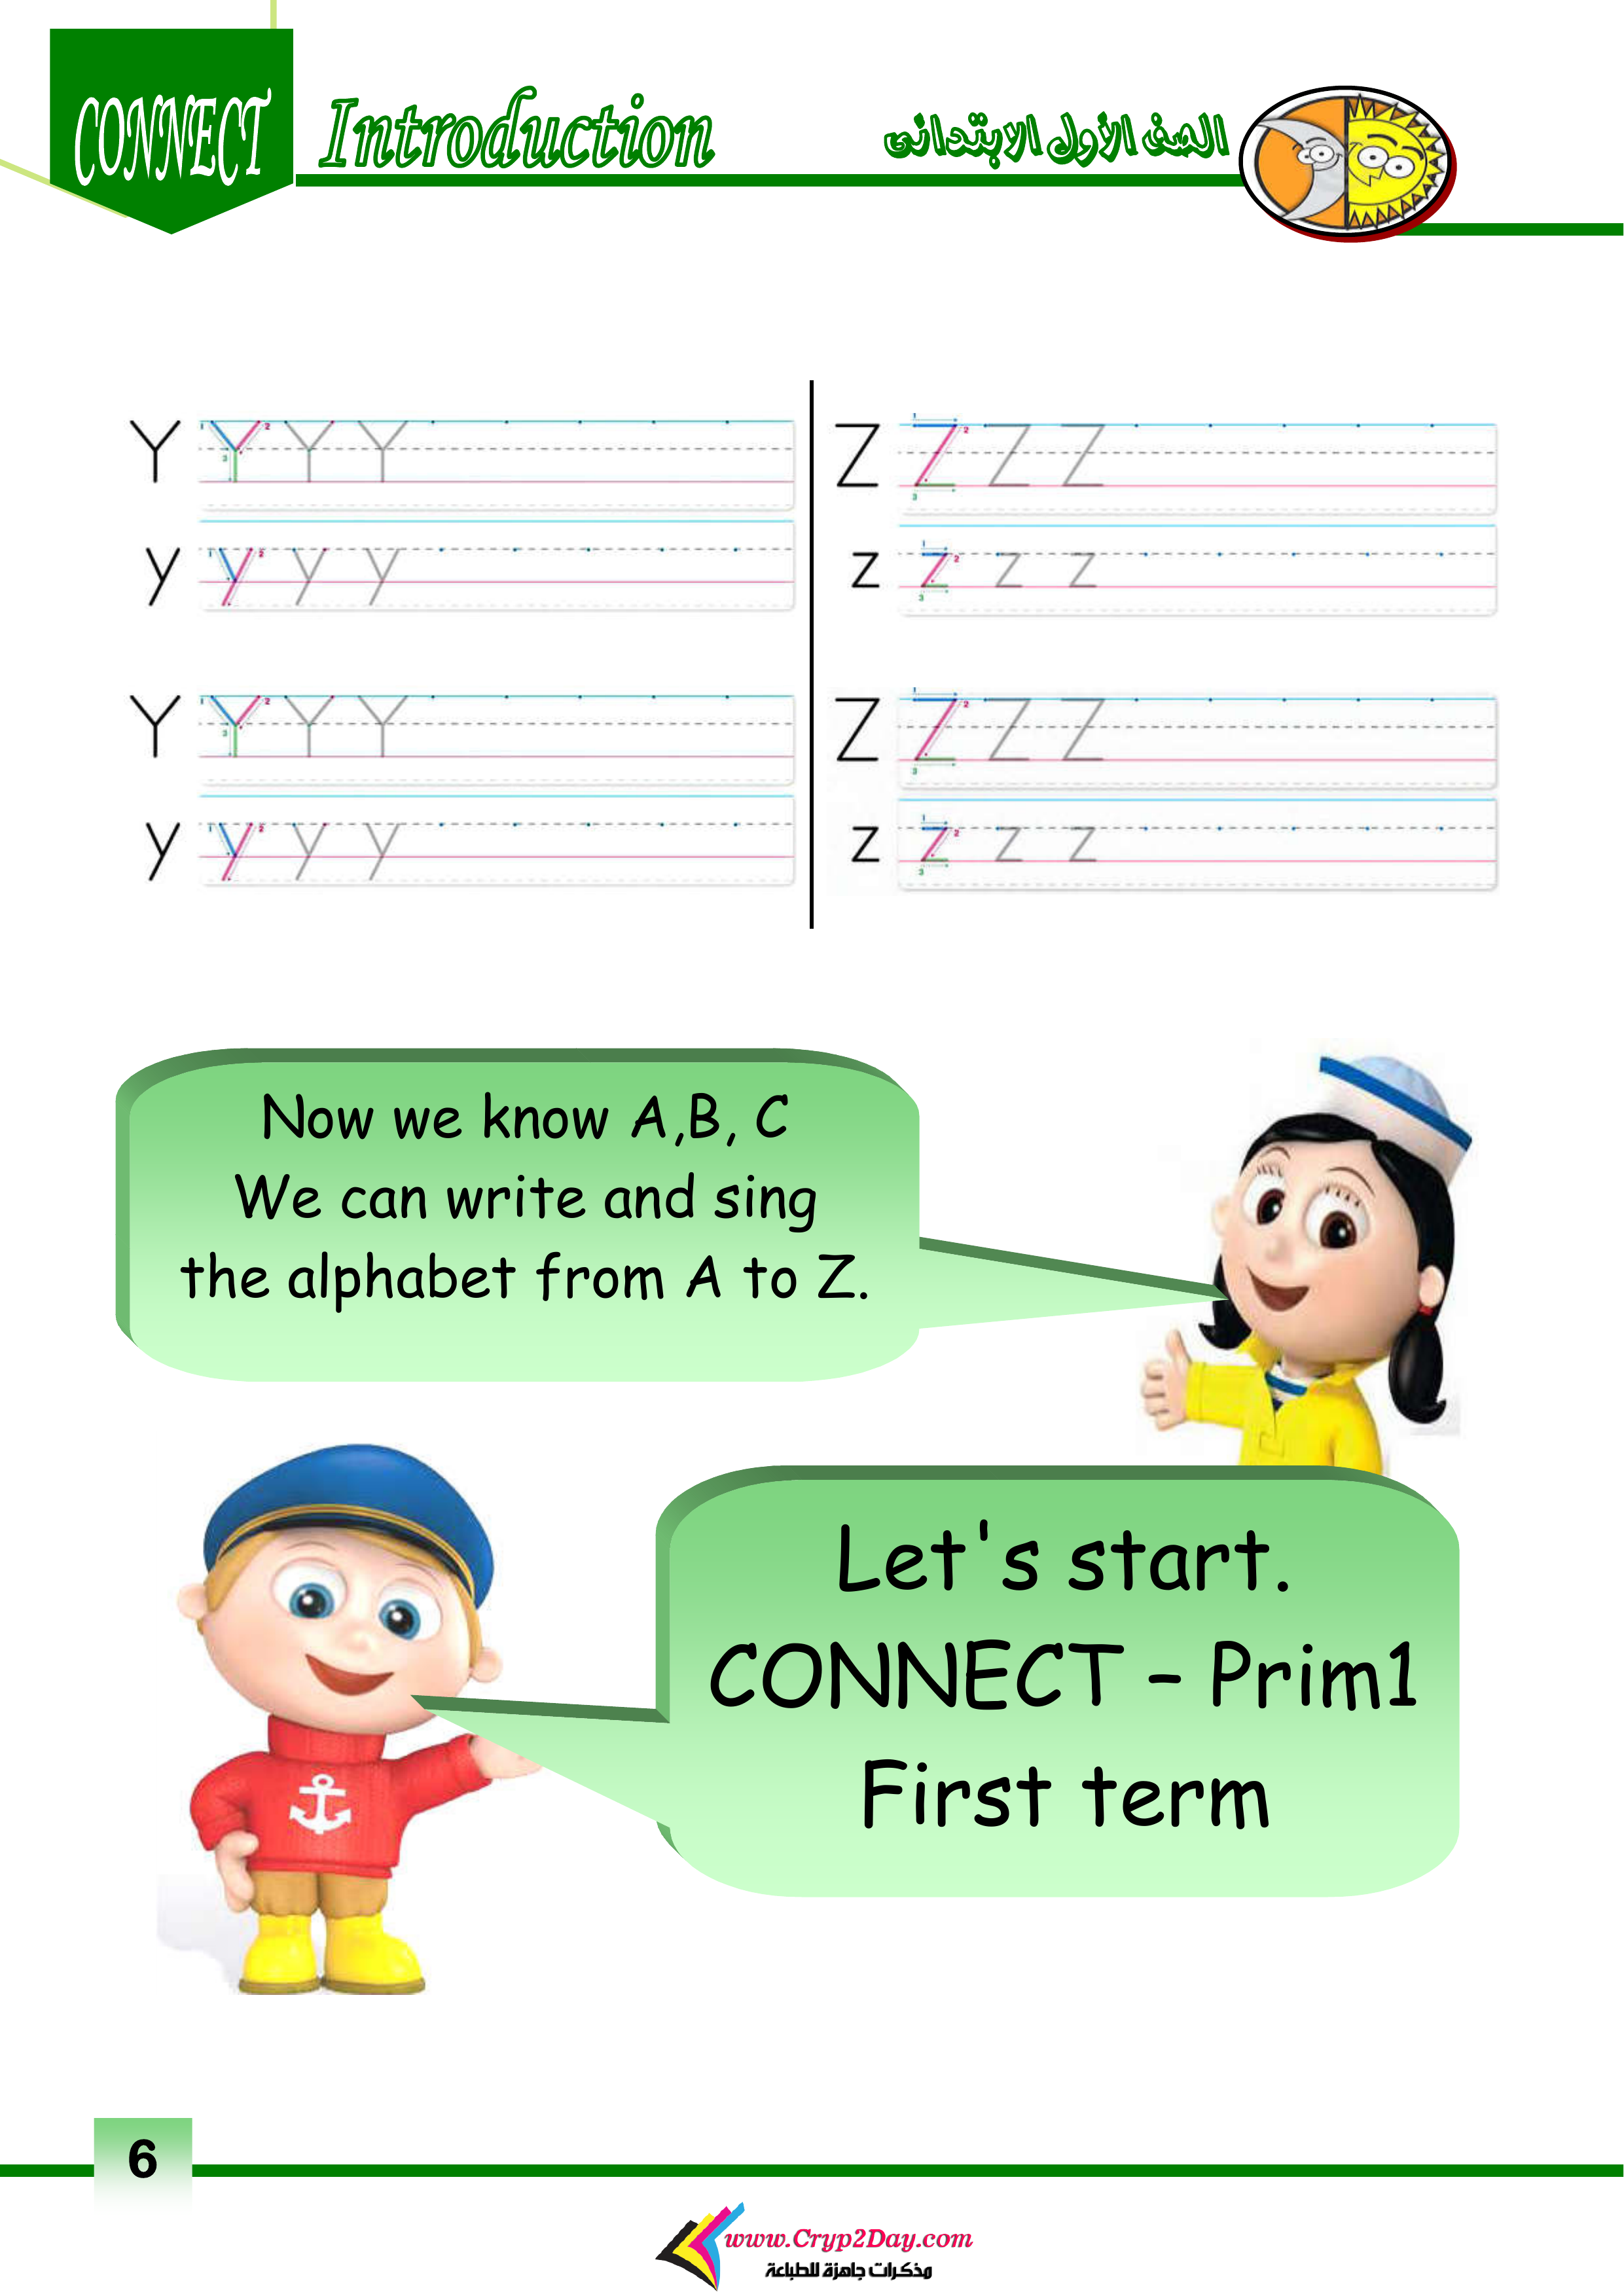 CONNECT
Introduction
الصف الأول الابتدائى
Y 1 2 3 Y Y Y
y 1 2 y y y
Z 1 2 3 Z Z Z
z 1 2 3 z z z
Y 1 2 3 Y Y Y
y 1 2 y y y
Z 1 2 3 Z Z Z
z 1 2 3 z z z
Now we know A,B, C
We can write and sing
the alphabet from A to Z.
Let's start.
CONNECT – Prim1
First term
6
www.Cryp2Day.com
مذكرات جاهزة للطباعة